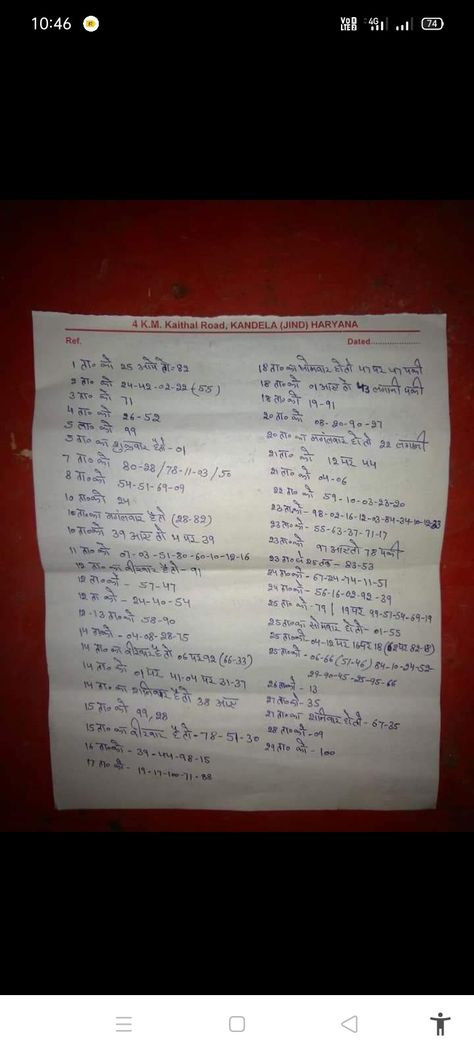 10:46
VoD LTE 4G 74
4 K.M. Kaithal Road, KANDELA (JIND) HARYANA
Ref. Dated....................
1 ता० को 25 आये तो-82
2 ता० को 24-42-02-22 (55)
3 ता० को 71
4 ता० को 26-52
5 ता० को 99
5 ता० का शुक्रवार है तो-01
7 ता० को 80-28/78-11-03/50
8 ता० को 54-51-69-09
10 ता० को 24
10 ता० का मगंलवार है तो (28-82)
10 ता० को 39 आए तो 4 पर 39
11 ता० को 01-03-51-80-60-10-12-16
12 ता० का वीरवार है तो-91
12 ता० को - 57-47
12 ता० को - 24-40-54
12-13 ता० को 58-90
14 ता० को - 04-08-28-75
14 ता० का वीरवार है तो 06 पर 92 (66-33)
14 ता० को 01 पर 41-04 पर 31-37
14 ता० का शनिवार है तो 38 आए
15 ता० को 99, 28
15 ता० का वीरवार है तो-78-51-30
16 ता० को - 39-44-98-15
17 ता० को - 19-17-100-71-88
18 ता० का सोमवार हो तो 47 पर 47 पकी
18 ता० को 01 आए तो 43 लगानी पकी
18 ता० को 19-91
20 ता० को 08-20-90-27
20 ता० का मगंलवार हो तो 22 लगानी
21 ता० को 12 पर 44
21 ता० को 04-06
22 ता० को 59-10-03-23-20
23 ता० को-98-02-16-12-03-84-34-10-12-23
23 ता० को-55-63-37-71-17
23 ता० को 97 आए तो 78 पकी
23 ता० से 25 तक-23-53
24 ता० को-67-24-74-11-51
24 ता० को-56-16-02-92-39
25 ता० को-79/19 पर 99-51-54-69-19
25 ता० का सोमवार हो तो-01-55
25 ता० को-04-12 पर 16 पर 18 (62 पर 82-18)
25 ता० को-06-66 (57-46) 84-10-24-52
29-90-45-25-95-66
26 ता० को-13
27 ता० को-35
27 ता० का शनिवार हो तो-67-35
28 ता० को-09
29 ता० को-100